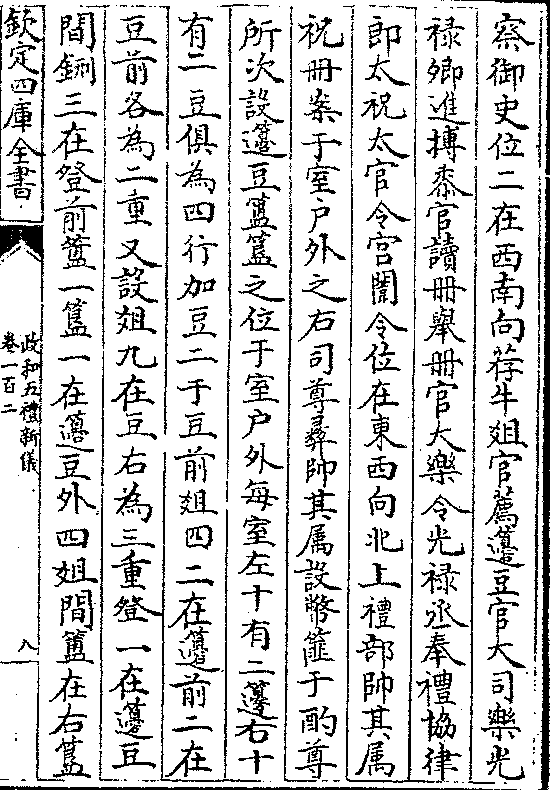 察御史位二在西南向荐牛俎官薦籩豆官大司樂光
禄卿進搏黍官讀冊舉冊官大樂令光禄丞奉禮協律
郎太祝太官令宫闈令位在東西向北上禮部帥其属
祝冊案于室户外之右司尊彞帥其属設幣篚于酌尊
所次設籩豆簠簋之位于室户外每室左十有二籩右十
有二豆俱為四行加豆二于豆前俎四二在籩前二在
豆前各為二重又設俎九在豆右為三重登一在籩豆
間鉶三在登前簠一簋一在籩豆外四俎間簠在右簋
欽定四庫全書
政和五禮新儀
卷一百二
八